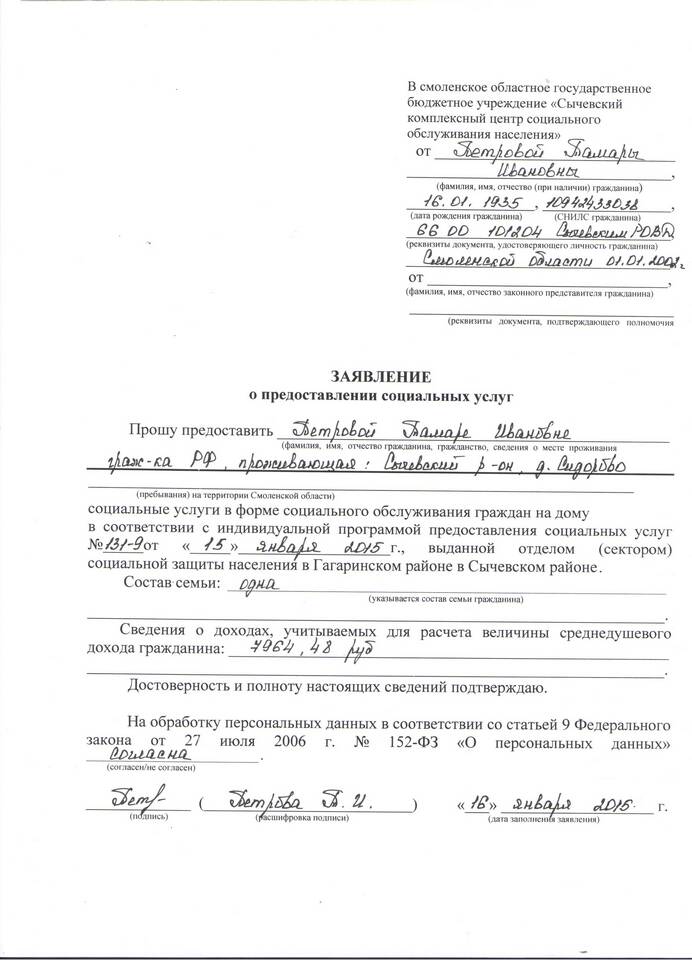 В смоленское областное государственное
бюджетное учреждение «Сычевский
комплексный центр социального
обслуживания населения»
от Петровой Тамары
Ивановны,
(фамилия, имя, отчество (при наличии) гражданина)
16.01.1935, 10942433038,
(дата рождения гражданина) (СНИЛС гражданина)
66 00 101204 Сычевским РОВД
(реквизиты документа, удостоверяющего личность гражданина)
Смоленской области 01.01.2002г
от ,
(фамилия, имя, отчество законного представителя гражданина)
(реквизиты документа, подтверждающего полномочия
ЗАЯВЛЕНИЕ
о предоставлении социальных услуг
Прошу предоставить Петровой Тамаре Ивановне
(фамилия, имя, отчество гражданина, гражданство, сведения о месте проживания
граж-ка РФ, проживающая: Сычевский р-он, д. Сидорово
(пребывания) на территории Смоленской области)
социальные услуги в форме социального обслуживания граждан на дому
в соответствии с индивидуальной программой предоставления социальных услуг
№131-9 от «15» января 2015 г., выданной отделом (сектором)
социальной защиты населения в Гагаринском районе в Сычевском районе.
Состав семьи: одна
(указывается состав семьи гражданина)
.
Сведения о доходах, учитываемых для расчета величины среднедушевого
дохода гражданина: 7964,48 руб
.
Достоверность и полноту настоящих сведений подтверждаю.
На обработку персональных данных в соответствии со статьей 9 Федерального
закона от 27 июля 2006 г. № 152-ФЗ «О персональных данных»
согласна.
(согласен/не согласен)
Петр- (Петрова Т. И.) «16» января 2015 г.
(подпись) (расшифровка подписи) (дата заполнения заявления)